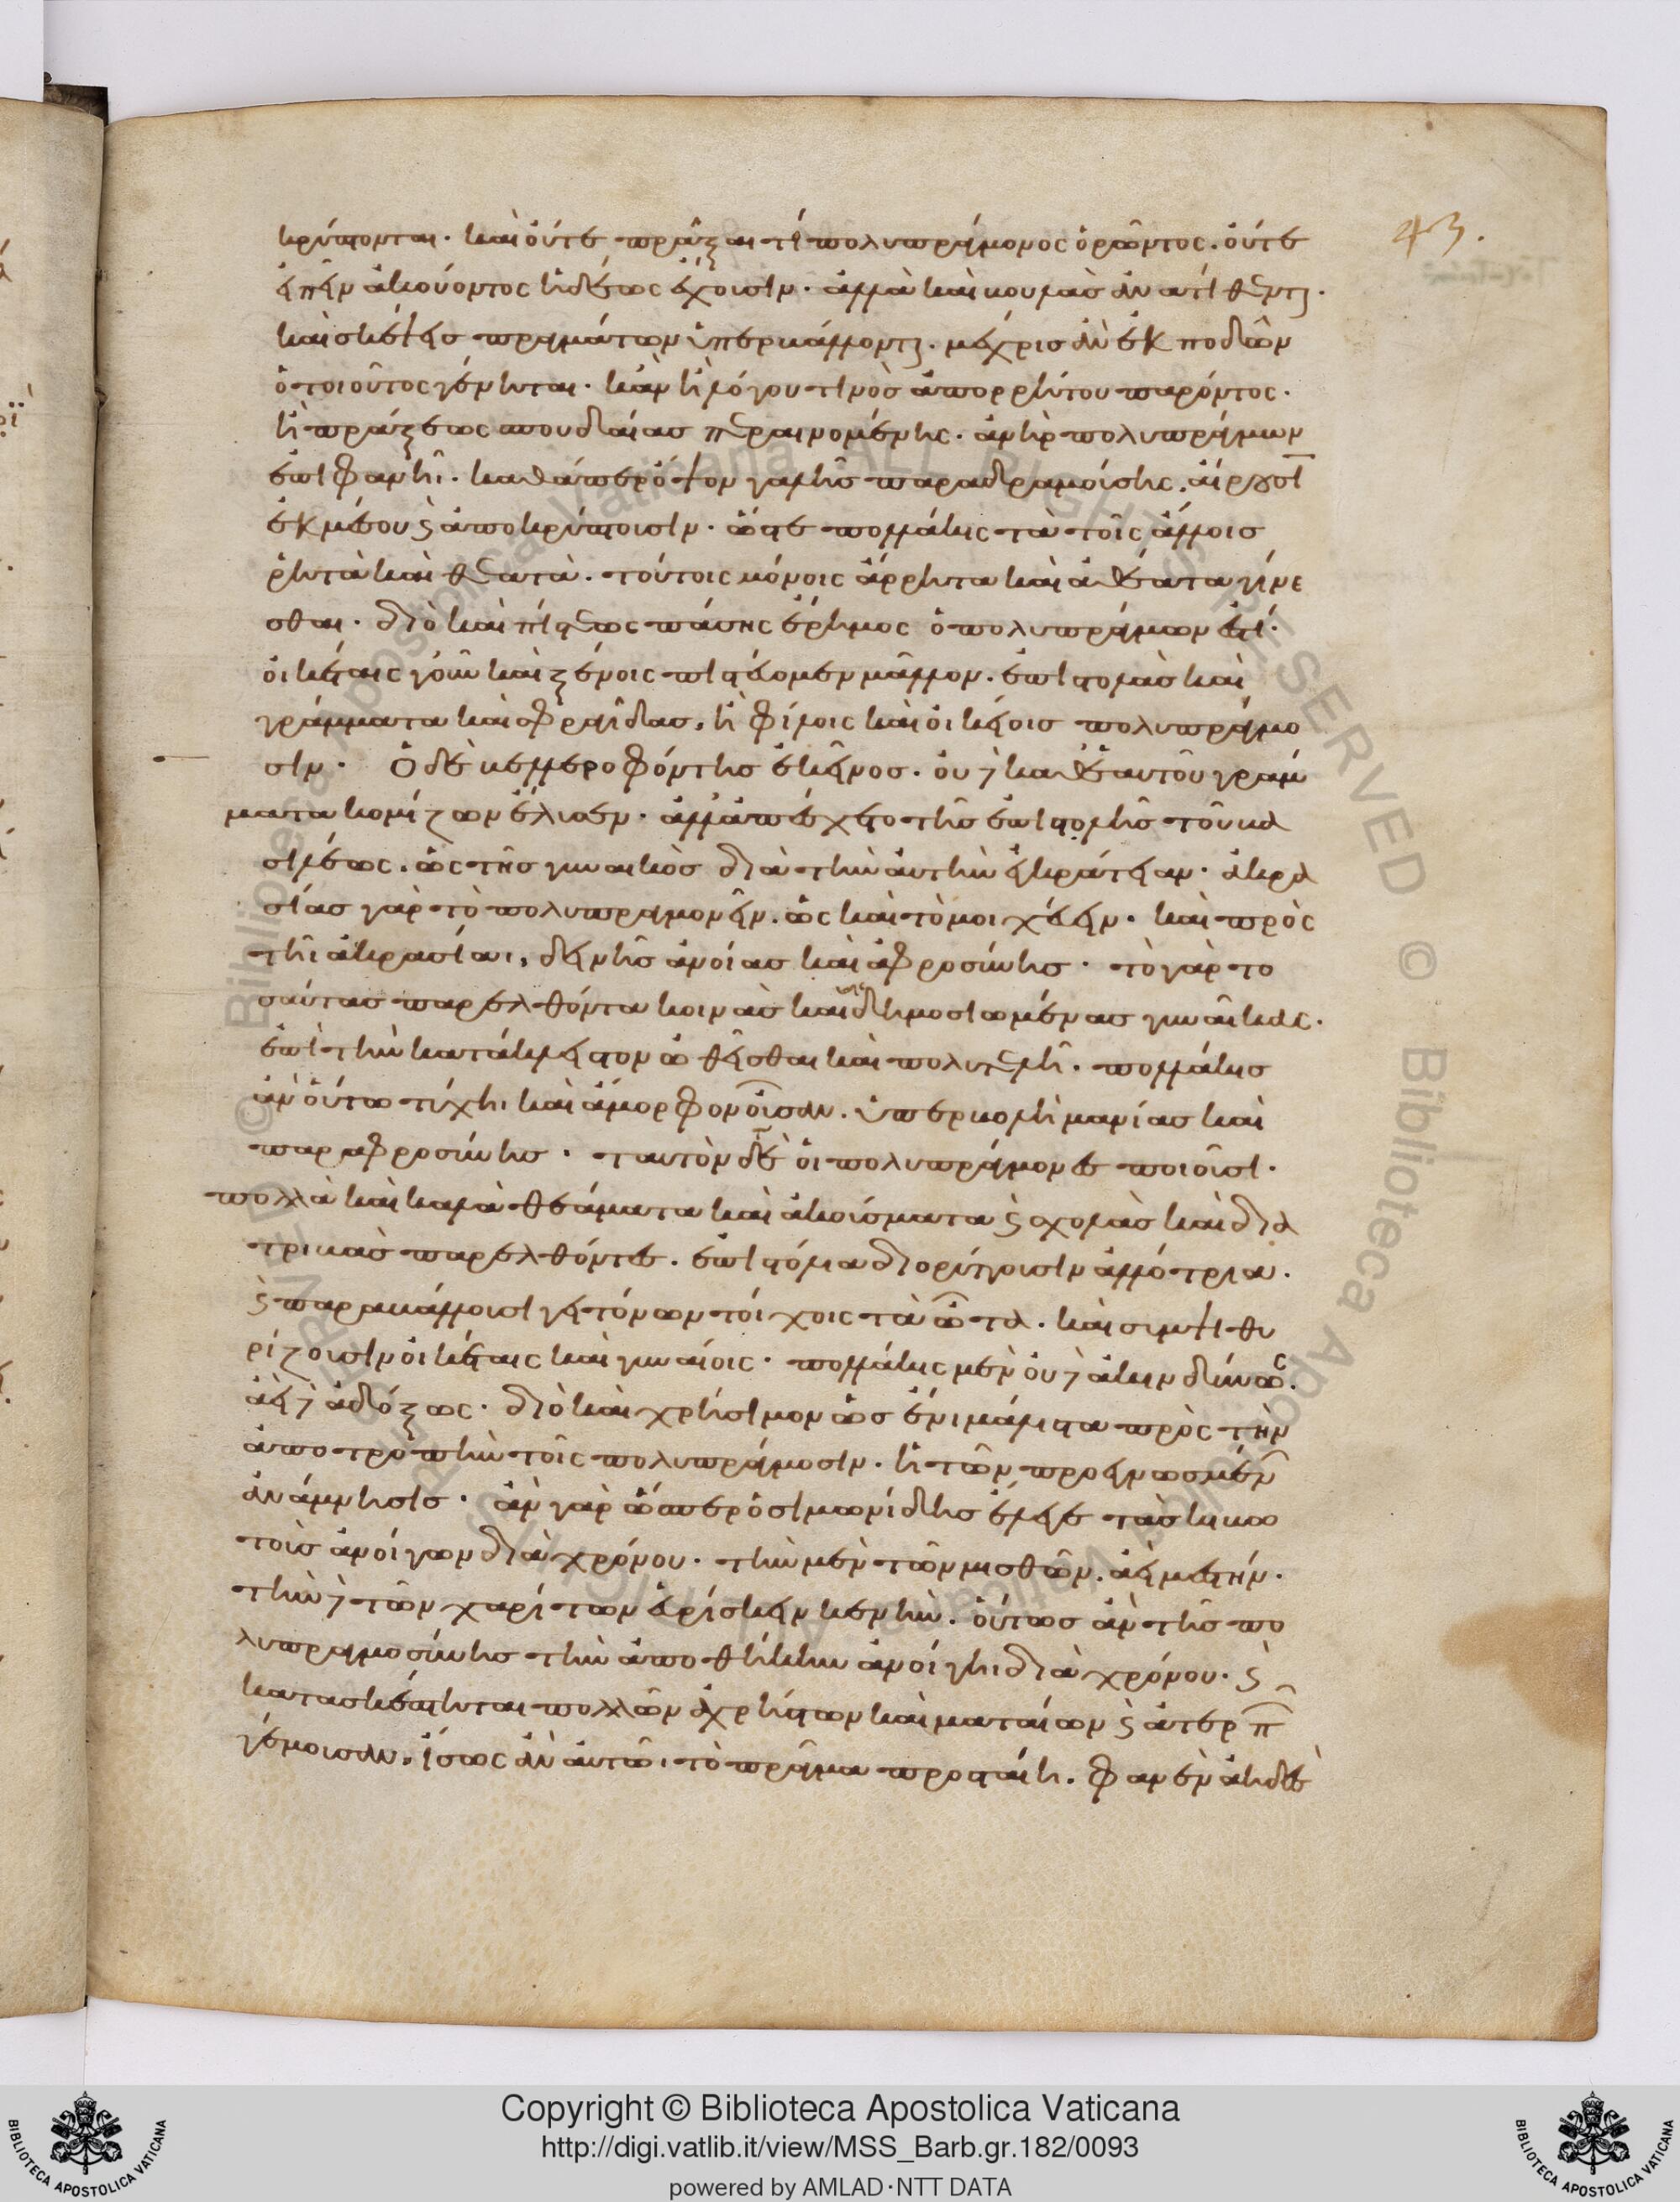 43.
κρύπτονται· καὶ οὔτε πρᾶξαι τὶ πολυπράγμονος ὁρῶντος· οὔτε
εἰπεῖν ἀκούοντος ἡδέως ἔχουσιν· ἀλλὰ καὶ βουλὰσ ἀνατίθενται·
καὶ σκέψεισ πραγμάτων ὑπερβάλλονται· μέχρισ ἂν ἐκποδὼν
ὁ τοιοῦτος γένηται· κἂν ἢ λόγου τινὸσ ἀπορρήτου παρόντος·
ἢ πράξεως σπουδαίασ περαινομένης· ἀνὴρ πολυπράγμων
ἐπιφανῆι· καθάπερ ὄψον γαλῆσ παραδραμούσης, αἴρουσι
ἐκ μέσου καὶ ἀποκρύπτουσιν· ὥστε πολλάκις τὰ τοῖς ἄλλοισ
ῥητὰ καὶ θεατὰ· τούτοις μόνοις ἄρρητα καὶ ἀθέατα γίνε
σθαι· διὸ καὶ πίστεως πάσης ἔρημος ὁ πολυπράγμων ἐστί·
οἰκέταις γοῦν καὶ ξένοις πιστεύομεν μᾶλλον· ἐπιστολὰσ καὶ
γράμματα καὶ σφραγῖδασ, ἢ φίλοις καὶ οἰκείοισ πολυπράγμο
σιν· Ὁ δὲ βελλεροφόντησ ἐκεῖνοσ· οὐδὲ καθ' ἑαυτοῦ γράμ
ματα κομίζων ἔλυσεν· ἀλλ' ἀπέσχετο τῆσ ἐπιστολῆσ τοῦ βα
σιλέως, ὡς τῆσ γυναικὸσ διὰ τὴν αὐτὴν ἐγκράτειαν· ἀκρα
σίασ γὰρ τὸ πολυπραγμονεῖν· ὡς καὶ τὸ μοιχεύειν· καὶ πρὸς
τῆι ἀκρασίαι, δεινῆσ ἀνοίασ καὶ ἀφροσύνησ· τὸ γὰρ το
σαύτασ παρελθόντα κοινὰσ καὶ δεδημοσιωμένασ γυναῖκας·
ἐπὶ τὴν κατάκλειστον ὠθεῖσθαι καὶ πολυτελῆ· πολλάκισ
ἂν οὕτω τύχηι καὶ ἄμορφον οὖσαν· ὑπερβολὴ μανίασ καὶ
παραφροσύνησ· ταυτὸν δὲ οἱ πολυπράγμονεσ ποιοῦσι·
πολλὰ καὶ καλὰ θεάματα καὶ ἀκούσματα καὶ σχολὰσ καὶ δια
τριβὰσ παρελθόντεσ· ἐπιστόλια διορύττουσιν ἀλλότρια·
καὶ παραβάλλουσι γειτόνων τοίχοις τὰ ὦτα· καὶ συμψιθυ
ρίζουσιν οἰκέταις καὶ γυναίοις· πολλάκις μὲν οὐδὲ ἀκινδύνως·
ἀεὶ δὲ ἀδόξως· διὸ καὶ χρήσιμον ὡσ ἔνι μάλιστα πρὸς τὴν
ἀποτροπὴν τοῖς πολυπράγμοσιν· ἡ τῶν προεγνωσμένων
ἀνάμνησισ· ἂν γὰρ ὥσπερ ὁ σιμωνίδησ ἔλεγε τὰσ κιβω
τοὺσ ἀνοίγων διὰ χρόνου· τὴν μὲν τῶν μισθῶν· ἀεὶ μεστὴν·
τὴν δὲ τῶν χαρίτων εὑρίσκειν κενὴν· οὕτωσ ἂν τῆσ πο
λυπραγμοσύνησ τὴν ἀποθήκην ἀνοίγηι διὰ χρόνου· καὶ
κατασκέπτηται πολλῶν ἀχρήστων καὶ ματαίων καὶ ἀτερπῶν
γέμουσαν, ἴσως ἂν αὐτῶι τὸ πρᾶγμα προσταίη· φανὲν ἀηδὲσ
Copyright © Biblioteca Apostolica Vaticana
http://digi.vatlib.it/view/MSS_Barb.gr.182/0093
powered by AMLAD·NTT DATA
BIBLIOTECA APOSTOLICA VATICANA
BIBLIOTECA APOSTOLICA VATICANA